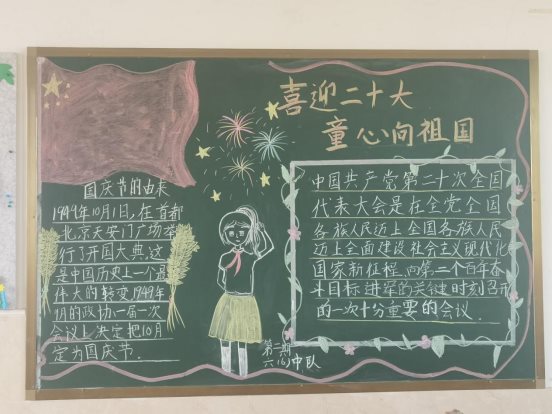 喜迎二十大
童心向祖国
国庆节的由来
1949年10月1日，在首都
北京天安门广场举
行了开国大典，这
是中国历史上一个最
伟大的转变1949年
9月的政协一届一次
会议上决定把10月
定为国庆节．
中国共产党第二十次全国
代表大会是在全党全国
各族人民迈上全国各族人民
迈上全面建设社会主义现代化
国家新征程，向第二个百年奋
斗目标进军的关键时刻召开
的一次十分重要的会议．
第二期
六（6）中队